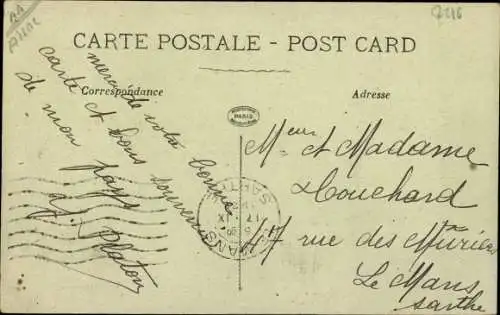 CARTE POSTALE - POST CARD
Correspondance
Adresse
PARIS
merci de votre bonne
carte et bons souvenirs
de mon pays
G. Platon
Mr et Madame
Houchard
47 rue des Mûriers
Le Mans
Sarthe